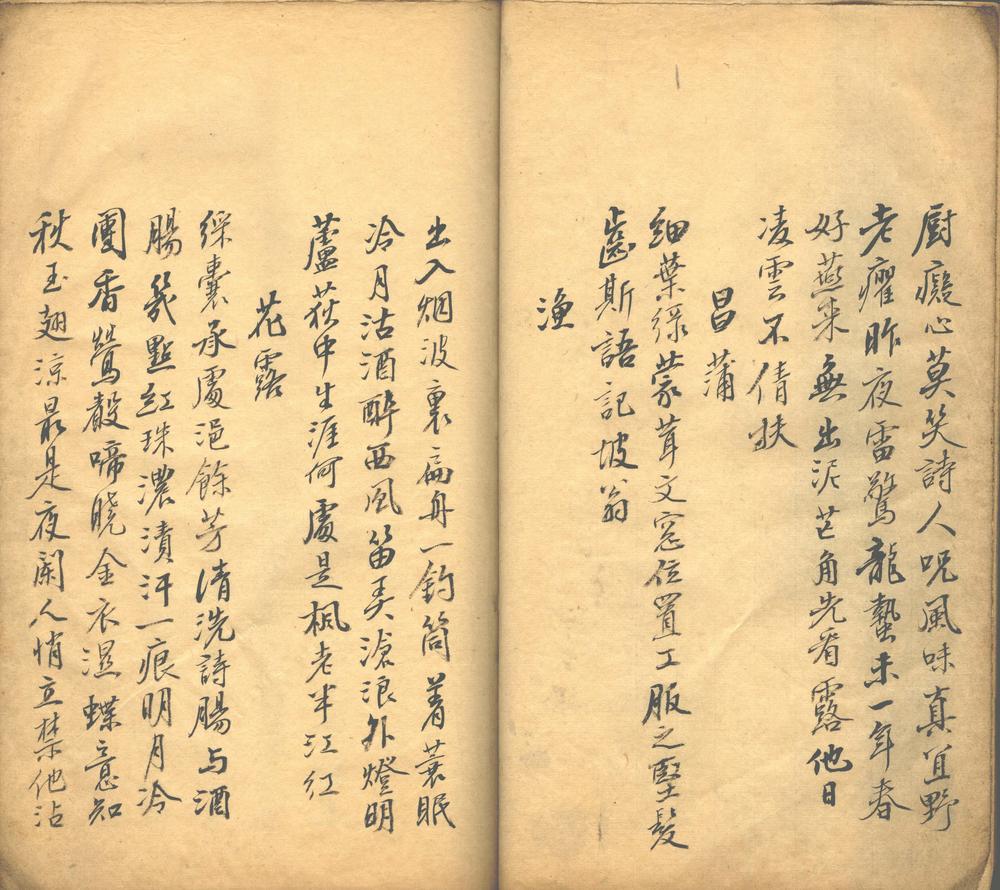 廚癡心莫笑詩人呪風味真宜野
老癯昨夜雷驚龍蟄未一年春
好燕来無出泥芒角先看露他日
凌雲不倩扶
昌蒲
細葉緑蒙茸文窓位置工服之堅髮
齒斯語記坡翁
漁
出入烟波裏扁舟一釣筒着蓑眠
冷月沽酒醉西風笛弄滄浪外燈明
蘆荻中生涯何處是楓老半江紅
花露
綵囊承處浥餘芳清洗詩腸与酒
腸幾點紅珠濃漬汗一痕明月冷
團香鶯聲啼曉金衣濕蝶意知
秋玉翅涼最是夜闌人悄立禁他沾